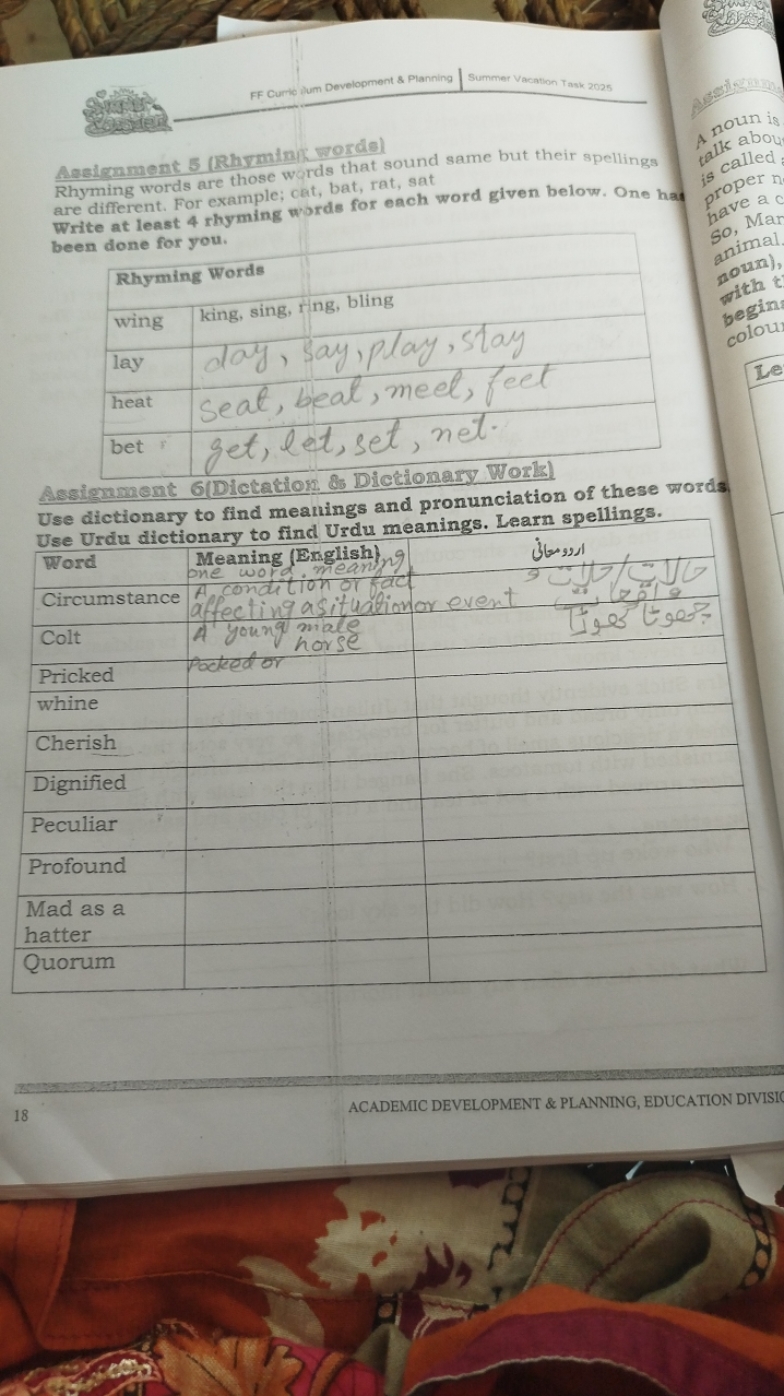 FF Curriculum Development & Planning | Summer Vacation Task 2025
Assignment 5 (Rhyming words)
Rhyming words are those words that sound same but their spellings
are different. For example; cat, bat, rat, sat
Write at least 4 rhyming words for each word given below. One has
been done for you.
Rhyming Words
wing king, sing, ring, bling
lay day, say, play, stay
heat seat, beat, meet, feet
bet get, let, set, net.
Assignment 6(Dictation & Dictionary Work)
Use dictionary to find meanings and pronunciation of these words.
Use Urdu dictionary to find Urdu meanings. Learn spellings.
Word Meaning (English) اردو معانی
one word meaning
Circumstance A condition or fact حالات/حلات و
affecting a situation or event واقعات
Colt A young male چھوٹا گھوڑا
horse
Pricked Pocked or
whine
Cherish
Dignified
Peculiar
Profound
Mad as a
hatter
Quorum
18
ACADEMIC DEVELOPMENT & PLANNING, EDUCATION
A noun is
talk abou
is called
proper n
have a c
So, Mar
animal.
noun),
with t
begins
colour
Le